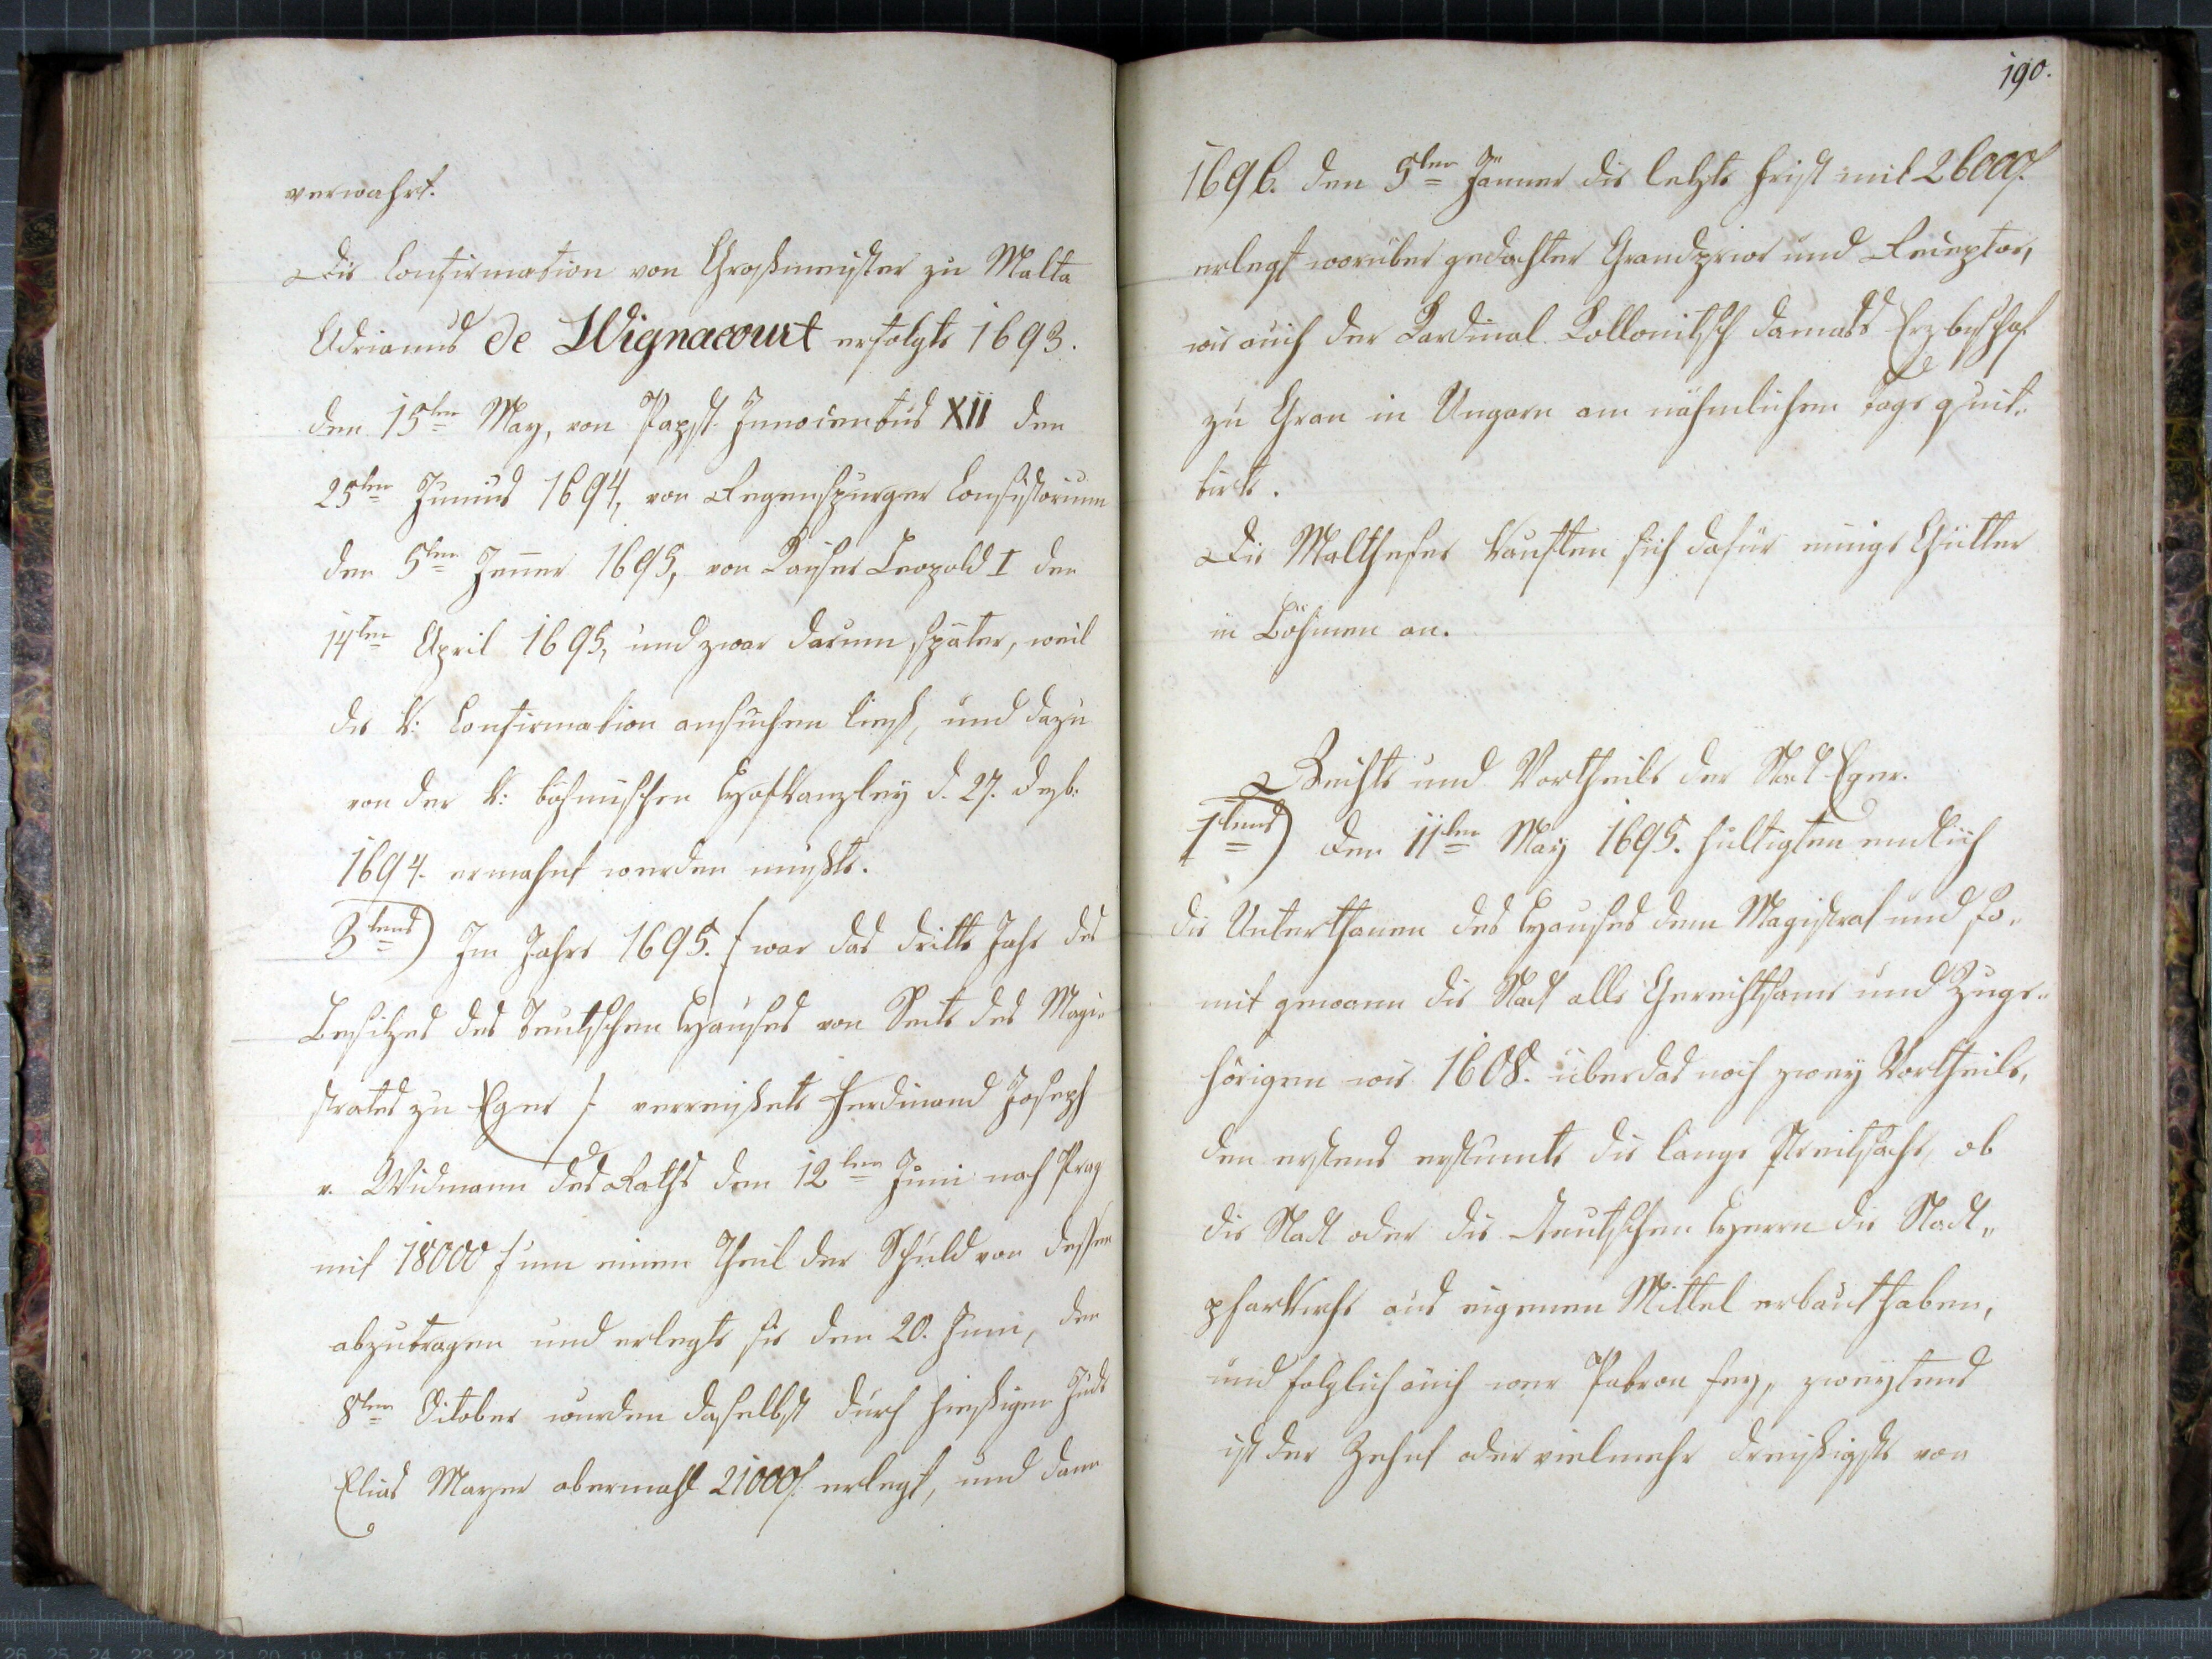 verwahrt.
Die Confirmation von Großmeister zu Malta
Adrianus de Wignacourt erfolgte 1693.
den 15ten May, von Papst Innocentus XII den
25ten Junius 1694, von Regenspurger Consistorium
den 5ten Jenner 1695, von Kaiser Leopold I den
14ten April 1695, und zwar darum später, weil
die k: Confirmation ansuchen ließ, und dazu
von der k: böhmischen Hofkanzley d. 27. Dezb:
1694. ermahnt werden mußte.
3tens) Im Jahre 1695. /: war das dritte Jahr des
Besitzes des Teutschen Hauses von Seite des Magi-
strates zu Eger :/ verreißete Ferdinand Joseph
v. Widmann des Raths den 12ten Juni nach Prag
mit 18000 f um einen Theil der Schuld von dessen
abzutragen und erlegte sie den 20. Juni, den
8ten October wurden daselbst durch hießigen Jude
Elias Mayer abermahl 21000f. erlegt, und dann
190.
1696. den 5ten Jänner die letzte Frist mit 26000f.
erlegt worüber gedachter Grandprior und Receptor,
wie auch der Kardinal Kollonitsch damals Erzbischof
zu Gran in Ungarn am nähmlichen Tage quit-
tirte.
Die Maltheser kauften sich dafür einige Gütter
in Böhmen an.
Rechte und Vortheile der Stadt Eger.
1tens) Den 11ten May 1695. hultigten endlich
die Unterthanen des Hauses dem Magistrat und so-
mit gewann die Stadt alle Gerechtsame und Zuge-
hörigen wie 1608. überdas noch zwey Vortheile,
den erstens erstumte die lange Streitsache, ob
die Stadt oder die Teutschen Herrn die Stadt-
pfarkirche aus eigenen Mittel erbaut haben,
und folglich auch wer Patron sey, zweytens
ist der Zehnt oder vielmehr dreyßigste von